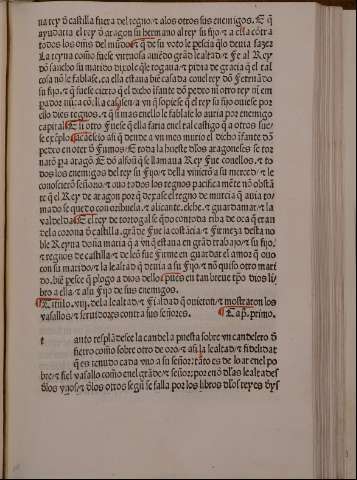 na rey d̄ castilla fuera del regno. ⁊ alos otros sus enemigos. E q̄
ayudaria el rey d̄ aragon su hermano al rey su fijo. ⁊ a ella cōtra
todos los om̄s del mūdo. ⁊ q̄ de su voto le pescia q̄lo deuia fazer
La reyna como fuese virtuosa auiēdo grād lealtad ⁊ Fe al Rey
dō sancho su marido dixole q̄le rogaua ⁊ pidia de gracia q̄ el tal
cosa nō le fablase. ca ella estaua biē casada con el rey dō fernādo
su fijo. ⁊ q̄ fuese cierto q̄ el dicho ifante dō pedro nī otro rey nī em
pador nūca cō. lla casasen. a vn q̄ sopiese q̄ el rey su fijo ouiese por
ello dies regnos. ⁊ q̄ si mas enello le fablase lo auria por enemigo
capital. E si otro fuese q̄ ella faria enel tal castigo q̄ a otros fue
se exēplo. acaesçio asi q̄ dende a vn mes murio el dicho ifante dō
pedro en oter d̄ fumos. E toda la hueste dlos aragoneses se tor
naron pa aragō. E dō alfonso q̄ se llamaua Rey fue conellos. ⁊ to
dos los enemigos del rey su fijo. ⁊ della vinierō a su merced. ⁊ le
conoscierō señorio. ⁊ ouo todos los regnos pacifica mēte nō obstā
te q̄ el Rey de aragon por q̄ dexase el regno de murcia q̄ auia to
mado se quedo con orihuela. ⁊ alicante. elche. ⁊ guardamar. ⁊ la
val de elda. E el rey de portogal se qdo con toda riba de coa q̄ eran
dela corona d̄ castilla. grāde fue la costācia ⁊ firmeza desta no
ble Reyna doña maria q̄ a vn q̄ estaua en grād trabajo. ⁊ su fijo.
⁊ regnos de castilla. ⁊ de leō fue firme en guardar el amor q̄ ouo
con su marido. ⁊ la lealtad q̄ deuia a su fijo. ⁊ nō quiso otro mari
do. biē pesce q̄ plogo a dios dello. pues en tan breue tpō dios li
bro a ella. ⁊ alu fijo de sus enemigos.
Titulo. viij. dela lealtad. ⁊ fialdad q̄ ouierōn. ⁊ mostraron los
vasallos. ⁊ seruidores contra sus señores. Cap. primo.
t anto resplādesçe la candela puesta sobre vn candelero d̄
fierro como sobre otro de oro. ⁊ asi la lealtad. ⁊ fidelidat
q̄ es tenudo cada vno a su señor. tāto es de loar enel po
bre. ⁊ fiel vasallo como enel grāde. ⁊ señor: por en ō dlas lealtades
dlos vnos. ⁊ dlos otros segū se falla por los libros dlos reyes dys